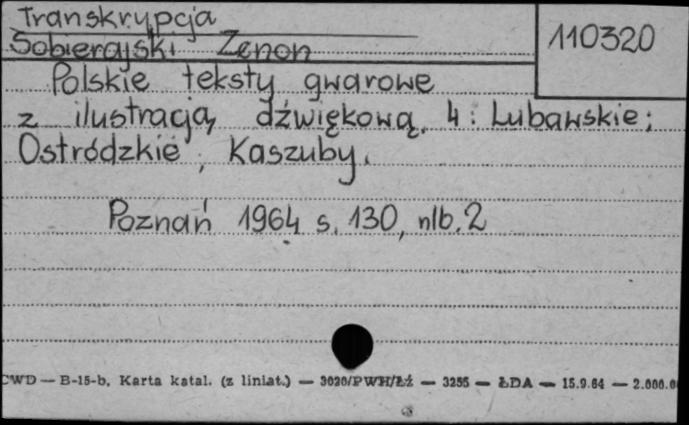 Transkrypcja
110320
Sobierajski Zenon
Polskie teksty gwarowe
z ilustracją dźwiękową. 4: Lubawskie;
Ostródzkie, Kaszuby.
Poznań 1964 s. 130, nlb. 2
CWD — B-15-b, Karta katal. (z liniat.) — 3020/PWH/Łź — 3255 — ŁDA — 15.9.64 — 2.000.0